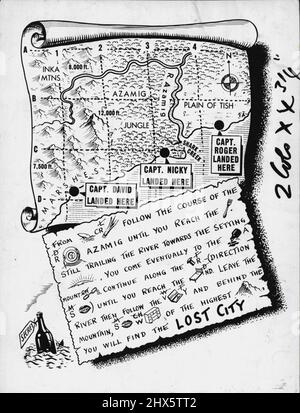 1 2 3 4
A
INKA
MTNS.
8,000 ft.
N
B
AZAMIG
12,000 ft.
Azamig
PLAIN OF TISH
JUNGLE
C
7,500 ft.
SHARK
CREEK
CAPT.
ROGER
LANDED
HERE
CAPT. NICKY
LANDED HERE
CAPT. DAVID
LANDED HERE
D
2 Cols X X 3¼"
FROM
FOLLOW THE COURSE OF THE
AZAMIG UNTIL YOU REACH THE
STILL TRAILING THE RIVER TOWARDS THE SETTING
YOU COME EVENTUALLY TO THE
MOUNT
CONTINUE ALONG THE
DIRECTION
UNTIL YOU REACH THE
LEAVE THE
RIVER THEN FOLLOW THE
AND BEHIND THE
MOUNTAIN,
OF THE HIGHEST
YOU WILL FIND THE LOST CITY
alamy
Image ID: 2HX5TT2
www.alamy.com